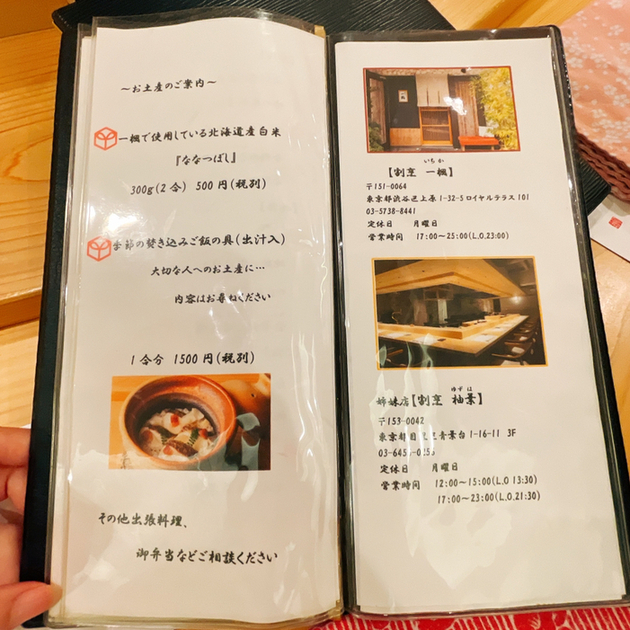 〜お土産のご案内〜
一楓で使用している北海道産白米
『ななつぼし』
300g(2合) 500円(税別)
季節の焚き込みご飯の具(出汁入)
大切な人へのお土産に…
内容はお尋ねください
1合分 1500円(税別)
その他出張料理、
御弁当などご相談ください
いちか
【割烹 一楓】
〒151-0064
東京都渋谷区上原1-32-5ロイヤルテラス101
03-5738-8441
定休日 月曜日
営業時間 17:00~25:00(L.O.23:00)
ゆずは
姉妹店【割烹 柚葉】
〒153-0042
東京都目黒区青葉台1-16-11 3F
定休日 月曜日
営業時間 12:00~15:00(L.O 13:30)
17:00~23:00(L.O.21:30)